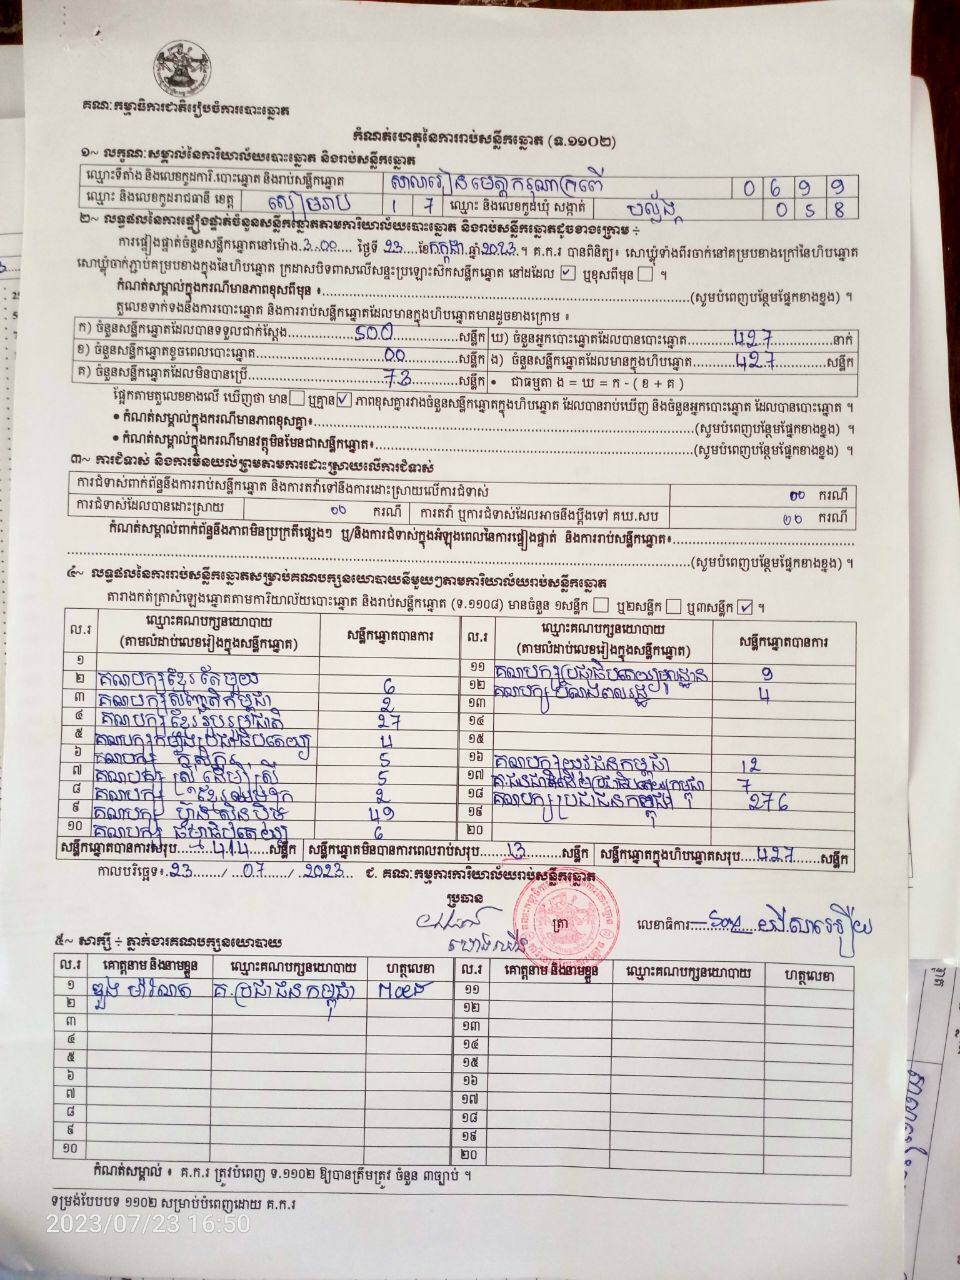 គណៈកម្មាធិការជាតិរៀបចំការបោះឆ្នោត
កំណត់ហេតុនៃការរាប់សន្លឹកឆ្នោត (ទ.១១០២)
១~ លក្ខណៈសម្គាល់នៃការិយាល័យបោះឆ្នោត និងរាប់សន្លឹកឆ្នោត
ឈ្មោះទីតាំង និងលេខកូដការិ.បោះឆ្នោត និងរាប់សន្លឹកឆ្នោត សាលារៀនមេត្តាករុណាក្រពើ 0 6 9 9
ឈ្មោះ និងលេខកូដរាជធានី ខេត្ត សៀមរាប 1 7 ឈ្មោះ និងលេខកូដឃុំ សង្កាត់ បល្ល័ង្គ 0 5 8
២~ លទ្ធផលនៃការផ្ទៀងផ្ទាត់ចំនួនសន្លឹកឆ្នោតតាមការិយាល័យបោះឆ្នោត និងរាប់សន្លឹកឆ្នោតដូចខាងក្រោម ÷
ការផ្ទៀងផ្ទាត់ចំនួនសន្លឹកឆ្នោតនៅម៉ោង 3.00 ថ្ងៃទី 23 ខែ កក្កដា ឆ្នាំ 2023 ។ គ.ក.រ បានពិនិត្យ៖ សោឃ្លុំទាំងពីរចាក់នៅគម្របខាងក្រៅនៃហិបឆ្នោត
សោឃ្លុំចាក់ភ្ជាប់គម្របខាងក្នុងនៃហិបឆ្នោត ក្រដាសបិទពាសលើសន្ទះប្រឡោះស៊កសន្លឹកឆ្នោត នៅដដែល ✓ ឬខុសពីមុន ។
កំណត់សម្គាល់ក្នុងករណីមានភាពខុសពីមុន ៖ (សូមបំពេញបន្ថែមផ្នែកខាងខ្នង) ។
តួលេខទាក់ទងនឹងការបោះឆ្នោត និងការរាប់សន្លឹកឆ្នោតដែលមានក្នុងហិបឆ្នោតមានដូចខាងក្រោម ៖
ក) ចំនួនសន្លឹកឆ្នោតដែលបានទទួលជាក់ស្ដែង 500 សន្លឹក ឃ) ចំនួនអ្នកបោះឆ្នោតដែលបានបោះឆ្នោត 427 នាក់
ខ) ចំនួនសន្លឹកឆ្នោតខូចពេលបោះឆ្នោត 00 សន្លឹក ង) ចំនួនសន្លឹកឆ្នោតដែលមានក្នុងហិបឆ្នោត 427 សន្លឹក
គ) ចំនួនសន្លឹកឆ្នោតដែលមិនបានប្រើ 73 សន្លឹក • ជាធម្មតា ង = ឃ = ក - ( ខ + គ )
ផ្អែកតាមតួលេខខាងលើ ឃើញថា មាន ឬគ្មាន ✓ ភាពខុសគ្នារវាងចំនួនសន្លឹកឆ្នោតក្នុងហិបឆ្នោត ដែលបានរាប់ឃើញ និងចំនួនអ្នកបោះឆ្នោត ដែលបានបោះឆ្នោត ។
• កំណត់សម្គាល់ក្នុងករណីមានភាពខុសគ្នា៖ (សូមបំពេញបន្ថែមផ្នែកខាងខ្នង) ។
• កំណត់សម្គាល់ក្នុងករណីមានវត្ថុមិនមែនជាសន្លឹកឆ្នោត៖ (សូមបំពេញបន្ថែមផ្នែកខាងខ្នង) ។
៣~ ការជំទាស់ និងការមិនយល់ព្រមតាមការដោះស្រាយលើការជំទាស់
ការជំទាស់ពាក់ព័ន្ធនឹងការរាប់សន្លឹកឆ្នោត និងការតវ៉ាទៅនឹងការដោះស្រាយលើការជំទាស់ 00 ករណី
ការជំទាស់ដែលបានដោះស្រាយ 00 ករណី ការតវ៉ា ឬការជំទាស់ដែលអាចនឹងប្ដឹងទៅ គឃ.សប 00 ករណី
កំណត់សម្គាល់ពាក់ព័ន្ធនឹងភាពមិនប្រក្រតីផ្សេងៗ ឬ/និងការជំទាស់ក្នុងអំឡុងពេលនៃការផ្ទៀងផ្ទាត់ និងការរាប់សន្លឹកឆ្នោត៖
(សូមបំពេញបន្ថែមផ្នែកខាងខ្នង) ។
៤~ លទ្ធផលនៃការរាប់សន្លឹកឆ្នោតសម្រាប់គណបក្សនយោបាយនីមួយៗតាមការិយាល័យរាប់សន្លឹកឆ្នោត
តារាងកត់ត្រាសំឡេងឆ្នោតតាមការិយាល័យបោះឆ្នោត និងរាប់សន្លឹកឆ្នោត (ទ.១១០៨) មានចំនួន ១សន្លឹក ឬ២សន្លឹក ឬ៣សន្លឹក ✓ ។
ល.រ ឈ្មោះគណបក្សនយោបាយ (តាមលំដាប់លេខរៀងក្នុងសន្លឹកឆ្នោត) សន្លឹកឆ្នោតបានការ ល.រ ឈ្មោះគណបក្សនយោបាយ (តាមលំដាប់លេខរៀងក្នុងសន្លឹកឆ្នោត) សន្លឹកឆ្នោតបានការ
១ គណបក្សខ្មែរតែមួយ 6
២ គណបក្សសញ្ជាតិកម្ពុជា 2
៣ គណបក្សខ្មែររួបរួមជាតិ 27
៤ គណបក្សកម្លាំងប្រជាធិបតេយ្យ 4
៥ គណបក្ស 5
៦ គណបក្ស ស្រី ដើម្បី ស្រី 5
៧ គណបក្ស 2
៨ គណបក្ស ហ៊្វុនស៊ិនប៉ិច 49
៩ គណបក្ស ធម្មាធិបតេយ្យ 6
១០
១១ គណបក្សប្រជាធិបតេយ្យមូលដ្ឋាន 9
១២ គណបក្ស 4
១៣
១៤
១៥
១៦ គណបក្សយុវជនកម្ពុជា 12
១៧ គ.ជនជាតិដើមប្រជាធិបតេយ្យកម្ពុជា 7
១៨ គណបក្សប្រជាជនកម្ពុជា 276
១៩
២០
សន្លឹកឆ្នោតបានការសរុប 414 សន្លឹក សន្លឹកឆ្នោតមិនបានការពេលរាប់សរុប 13 សន្លឹក សន្លឹកឆ្នោតក្នុងហិបឆ្នោតសរុប 427 សន្លឹក
កាលបរិច្ឆេទ៖ 23 / 07 / 2023 ជ. គណៈកម្មការការិយាល័យរាប់សន្លឹកឆ្នោត
ប្រធាន
ត្រា លេខាធិការ
៥~ សាក្សី ÷ ភ្នាក់ងារគណបក្សនយោបាយ
ល.រ គោត្តនាម និងនាមខ្លួន ឈ្មោះគណបក្សនយោបាយ ហត្ថលេខា ល.រ គោត្តនាម និងនាមខ្លួន ឈ្មោះគណបក្សនយោបាយ ហត្ថលេខា
១ គ.ប្រជាជនកម្ពុជា ១១
២ ១២
៣ ១៣
៤ ១៤
៥ ១៥
៦ ១៦
៧ ១៧
៨ ១៨
៩ ១៩
១០ ២០
កំណត់សម្គាល់ ៖ គ.ក.រ ត្រូវបំពេញ ទ.១១០២ ឱ្យបានត្រឹមត្រូវ ចំនួន ៣ច្បាប់ ។
ទម្រង់បែបបទ ១១០២ សម្រាប់បំពេញដោយ គ.ក.រ
2023/07/23 16:50